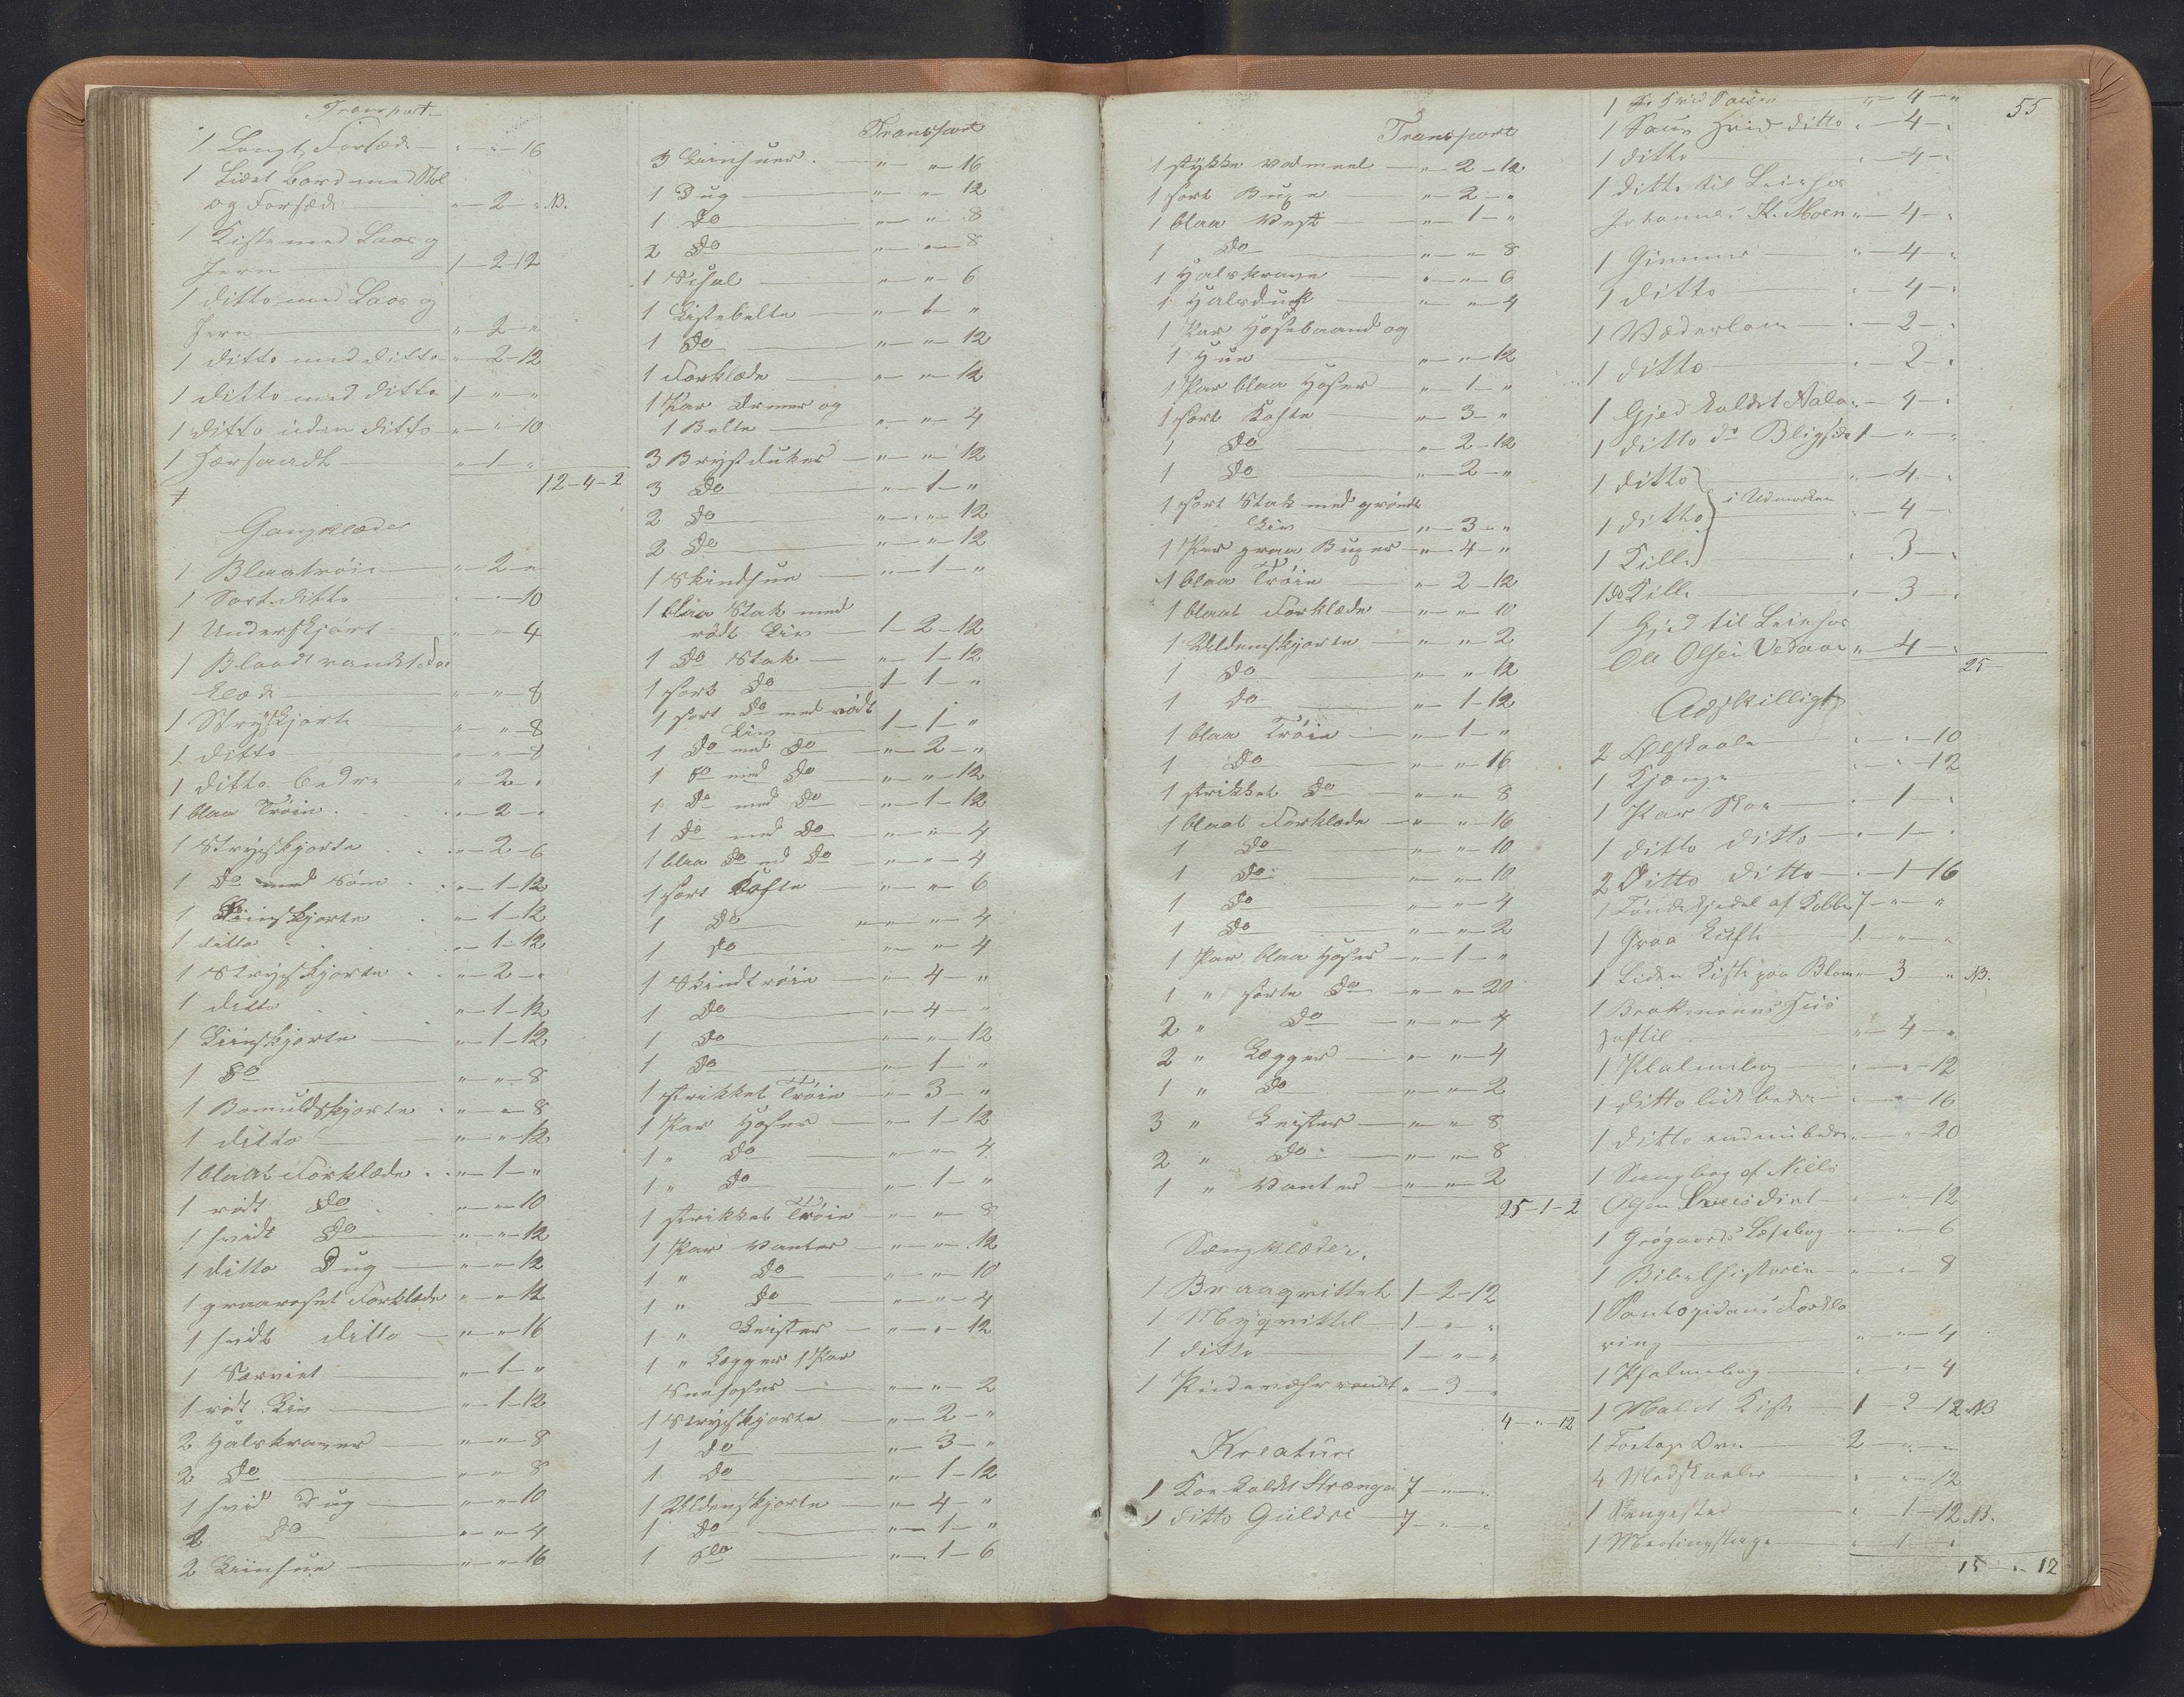 Transport
1 Langt Forsæde — " — " — 16
1 Lidet Bord med Stol
og Forsæde — " — 2 — " NB.
1 Kiste med Laas og
Jern — 1 — 2 — 12
1 ditto med Laas og
Jern — " — 2 — "
1 ditto med ditto — " — 2 — 12
1 ditto med ditto 1 — " — "
1 ditto uden ditto — " — " — 10
1 — " — 1 — "
12 — 4 — 2
Gangklæder
1 Blaatrøie — " — 2 — "
1 Sort ditto — " — " — 10
1 Underskjørt — " — " — 4
1 Blaadt randet For
klæde — " — " — 8
1 Strieskjorte — " — " — 8
1 ditto — " — " — 8
1 ditto bedre — " — 2 — "
1 blaa Trøie — " — 2 — "
1 Strieskjorte — " — 2 — 6
1 Do med Søm — " — 1 — 12
1 Liinskjorte — " — 1 — 12
1 ditto — " — 1 — 12
1 Strieskjorte — " — 2 — "
1 ditto — " — 1 — 12
1 Liinskjorte — " — 1 — 12
1 Do — " — " — 8
1 Bomuldskjorte — " — " — 8
1 ditto — " — " — 12
1 blaat Forklæde — " — 1 — "
1 rødt Do — " — " — 10
1 hvidt Do — " — " — 12
1 ditto Dug — " — " — 12
1 graaroset Forklæde " — " — 12
1 hvidt ditto — " — " — 16
1 Serviet — " — 1 — "
1 rødt Liv — " — 1 — 12
2 Halskraver — " — " — 8
2 Do — " — " — 8
1 hvid Dug — " — " — 10
2 Do — " — " — 4
2 Liinhue — " — " — 16
Transport
3 Liinhuer — " — " — 16
1 Dug — " — " — 12
1 Do — " — " — 8
2 Do — " — " — 8
1 Schal — " — " — 6
1 Listebelte — " — 1 — "
1 Do — " — " — 12
1 Forklæde — " — " — 12
1 Par Ærmer og
1 Belte — " — " — 4
3 Brystduker — " — " — 12
3 Do — " — 1 — "
2 Do — " — " — 12
2 Do — " — " — 12
1 Skindhue — " — 1 — "
1 blaa Stak med
rødt Liv — 1 — 2 — 12
1 Do Stak — " — 1 — 12
1 sort Do — 1 — 1 — "
1 sort Do med rødt
Liv — 1 — 1 — "
1 Do med Do — " — 2 — "
1 Do med Do — " — " — 12
1 Do med Do — " — 1 — 12
1 Do med Do — " — " — 4
1 blaa Do med Do — " — " — 4
1 sort Kofte — " — " — 6
1 Do — " — " — 4
1 Do — " — " — 4
1 Skindtrøie — " — 4 — "
1 Do — " — 4 — "
1 Do — " — " — 12
1 Do — " — 1 — "
1 strikket Trøie — " — 3 — "
1 Par Hoser — " — 1 — 12
1 " Do — " — " — 4
1 " Do — " — 1 — "
1 strikket Trøie — " — " — 8
1 Par Vanter — " — " — 12
1 " Do — " — " — 10
1 " Do — " — " — 4
1 " Leister — " — " — 12
1 " Lægger 1 Par
Sneehoser — " — " — 2
1 Strieskjorte — " — 2 — "
1 Do — " — 3 — "
1 Do — " — 1 — 12
1 Uldenskjorte — " — 4 — "
1 Do — " — 1 — "
1 Do — " — 1 — 6
Transport
1 stykke Vadmeel — " — 2 — 12
1 sort Buxe — " — 2 — "
1 blaa Vest — " — 1 — "
1 Do — " — " — 8
1 Halskrave — " — " — 6
1 Halsduk — " — " — 4
1 Par Hosebaand og
1 Hue — " — " — 12
1 Par blaa Hoser — " — 1 — "
1 sort Kofte — " — 3 — "
1 Do — " — 2 — 12
1 Do — " — 2 — "
1 sort Stak med grøndt
Liv — " — 3 — "
1 Par graa Buxer — " — 4 — "
1 blaa Trøie — " — 2 — 12
1 blaat Forklæde — " — " — 10
1 Uldenskjorte — " — " — 2
1 Do — " — " — 12
1 Do — " — 1 — 12
1 blaa Trøie — " — 1 — "
1 Do — " — " — 16
1 strikket Do — " — " — 8
1 blaat Forklæde — " — " — 16
1 Do — " — " — 10
1 Do — " — " — 10
1 Do — " — " — 4
1 Do — " — " — 2
1 Par blaa Hoser — " — 1 — "
1 " sorte Do — " — " — 20
2 " Do — " — " — 4
2 " Lægger — " — " — 4
1 " Do — " — " — 2
3 " Leister — " — " — 8
2 " Do — " — " — 8
1 " Vanter — " — " — 2
25 — 1 — 2
Sengklæder.
1 Braaqvittel 1 — 2 — 12
1 Myqvittel — 1 — " — "
1 ditto — 1 — " — "
1 — " — 3 — "
4 — " — 12
Kreature
1 Koe kaldt Strænga 7 — " — "
1 ditto Guldri — 7 — " — "
55
1 — " — 4 — "
1 Sau hvid ditto " — 4 — "
1 ditto — " — 4 — "
1 ditto til Leiehos
Johannes K. Moen " — 4 — "
1 Gimmer — " — 4 — "
1 ditto — " — 4 — "
1 Væderlam — " — 2 — "
1 ditto — " — 2 — "
1 Gjed kaldet " — 4 — "
1 ditto do 1 — " — "
1 ditto — " — 4 — "
i Udmarken
1 ditto — " — 4 — "
1 Kille — " — 3 — "
1 do Kille — " — 3 — "
1 Gjed til Leiehos
Ole Olsen Vedaae " — 4 — "
25
Adskilligt
2 Ølskaale — " — " — 10
1 Kjænge — " — " — 12
1 Par Skoe — " — 1 — "
1 ditto ditto — " — 1 — "
2 Ditto ditto — " — 1 — 16
1 Tøndekjedel af Kobber 7 — " — "
1 Graa Kufte — 1 — " — "
1 Liden Kiste — 3 — " NB.
1 Brokmanns Huus
Postil — " — 4 — "
1 Psalmebog — " — " — 12
1 ditto lidt bedre — " — " — 16
1 ditto endnu bedre — " — " — 20
1 Sangbog af Niels
Olsen — " — " — 12
1 Grøgaards Læsebog — " — " — 6
1 Bibelhistorie — " — " — 8
1 Pontopidans Forkla
ring — " — " — 4
1 Psalmebog — " — " — 4
1 Malet Kiste — 1 — 2 — 12 NB
1 Ovn — 2 — " — "
4 Madskaaler — " — " — 12
1 Sengested — " — 1 — 12 NB.
1 Messingstage — " — 1 — "
15 — " — 12